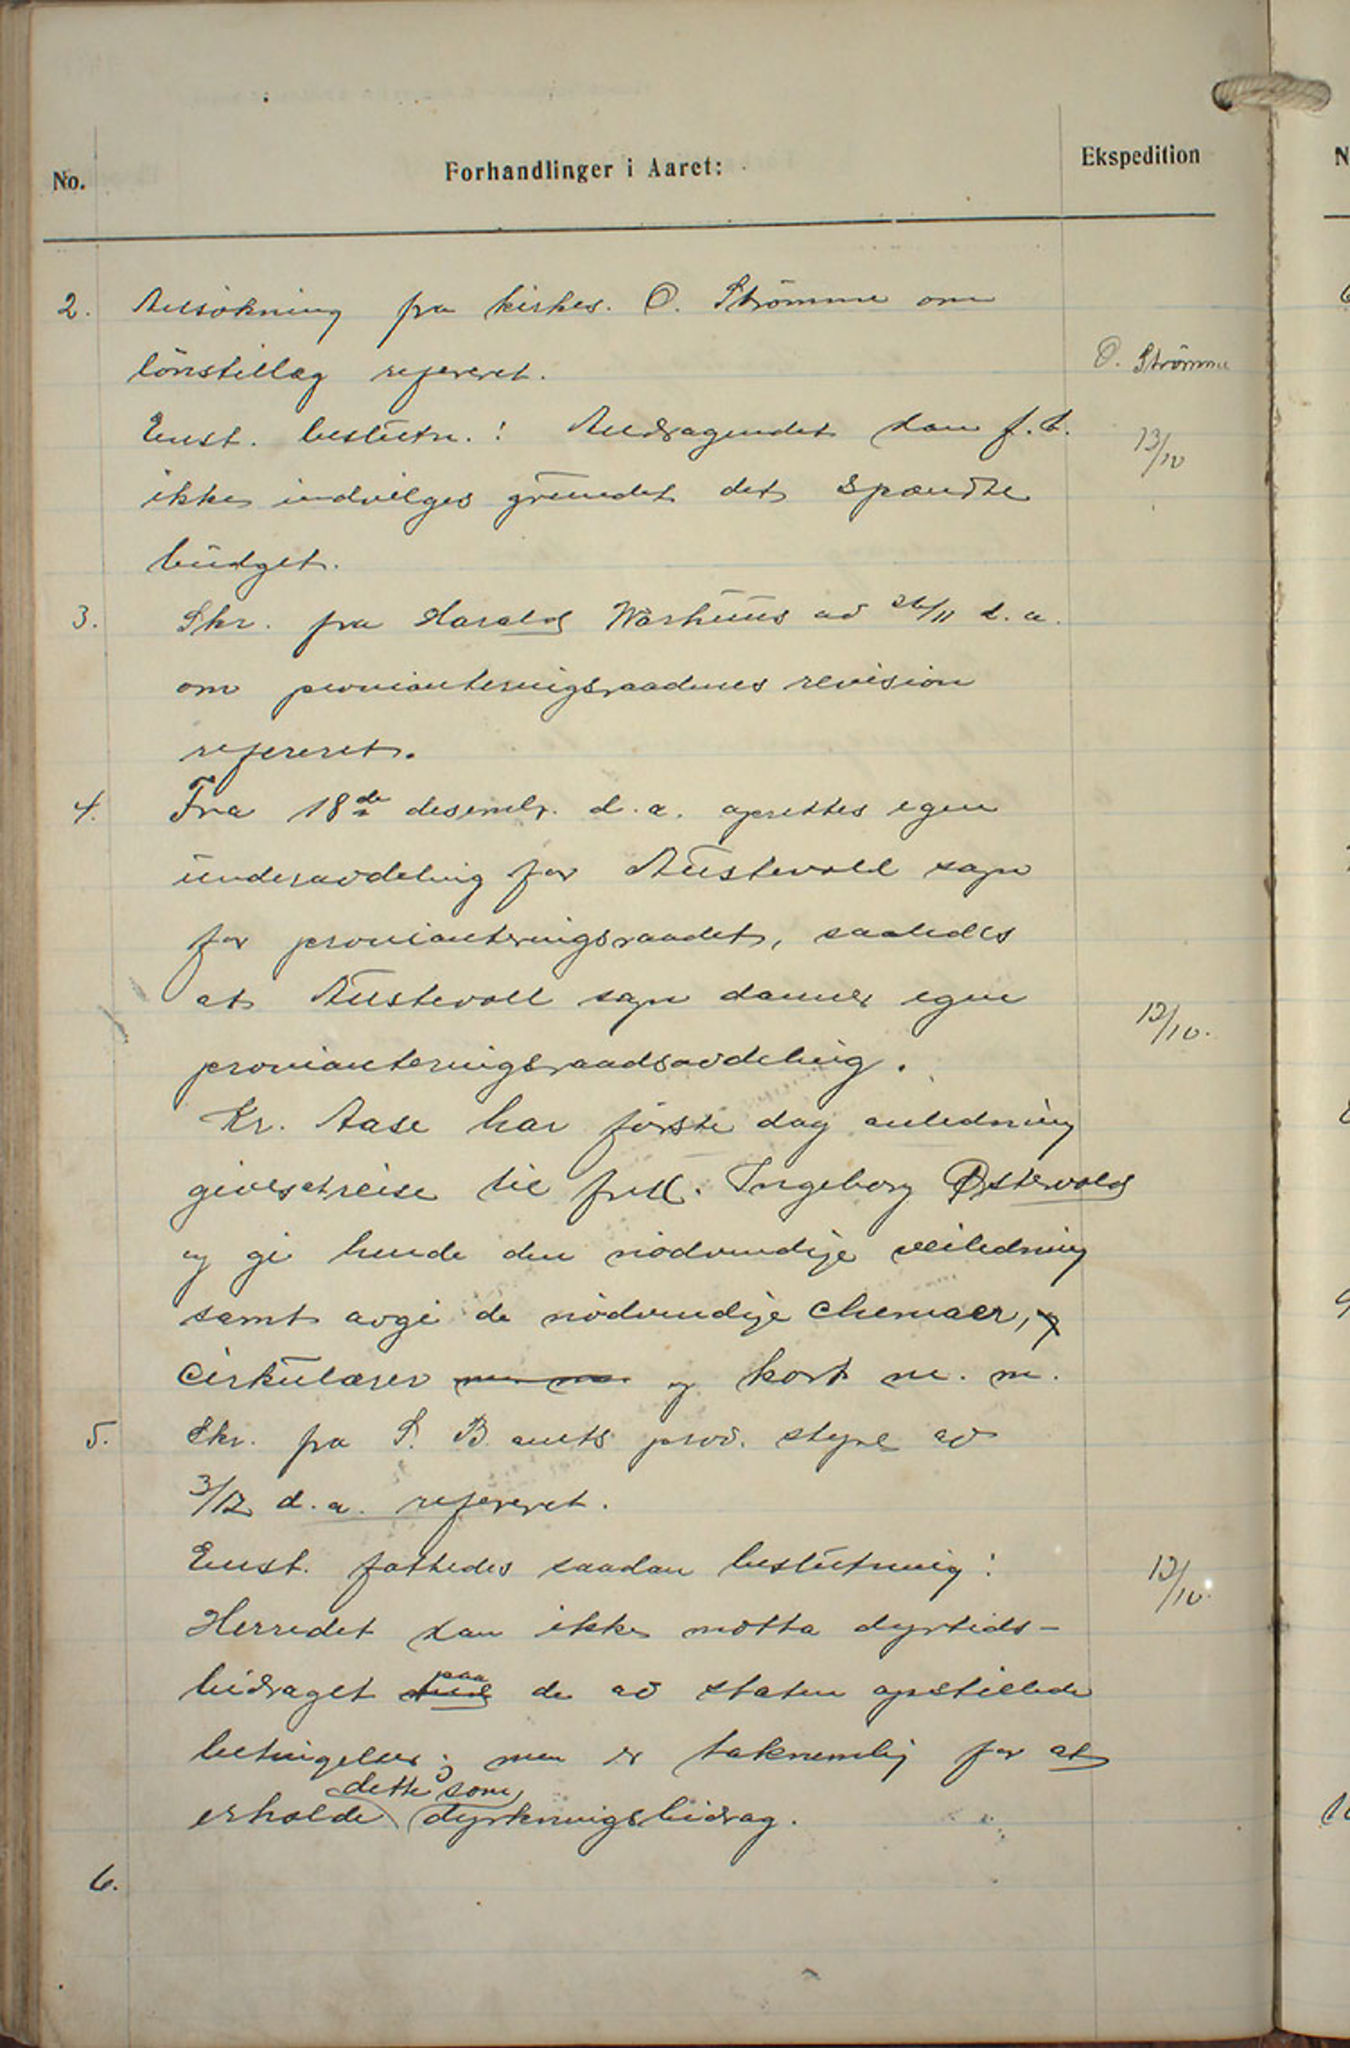 No.
Forhandlinger i Aaret:
Ekspedition
2. Ansökning fra kirkes. O. Strömme om
lönstillæg refereret.
O. Strömme
Enst. beslutn.: Andragendet kan f. t.
13/12
ikke indvilges grundet det spændte
budget.
3. Skr. fra Harald Warhuus av 26/11 d. a.
om provianteringsraadenes revision
refereret.
4. Fra 18de desembr. d. a. oprettes egen
underavdeling for Austevold sogn
for provianteringsraadet, saaledes
at Austevoll sogn danner egen
12/10.
provianteringsraadsavdeling.
Kr. Aase har første dag anledning
gives at reise til frk. Ingeborg Østervold
og gi hende den nödvendige veiledning
samt avgi de nödvendige chemaer, og
cirkulærer m. m. og kort m. m.
5. Skr. fra S. B. amts prov. styre av
3/12 d. a. refereret.
Enst. fattedes saadan beslutning:
12/10.
Herredet kan ikke motta dyrtids-
bidraget paa de av staten opstillede
betingelser; men er taknemlig for at
erholde dette som dyrkningsbidrag.
6.